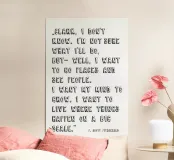 „CLARK, I DON'T
KNOW. I'M NOT SURE
WHAT I'LL DO.
BUT– WELL, I WANT
TO GO PLACES AND
SEE PEOPLE.
I WANT MY MIND TO
GROW. I WANT TO
LIVE WHERE THINGS
HAPPEN ON A BIG
SCALE."